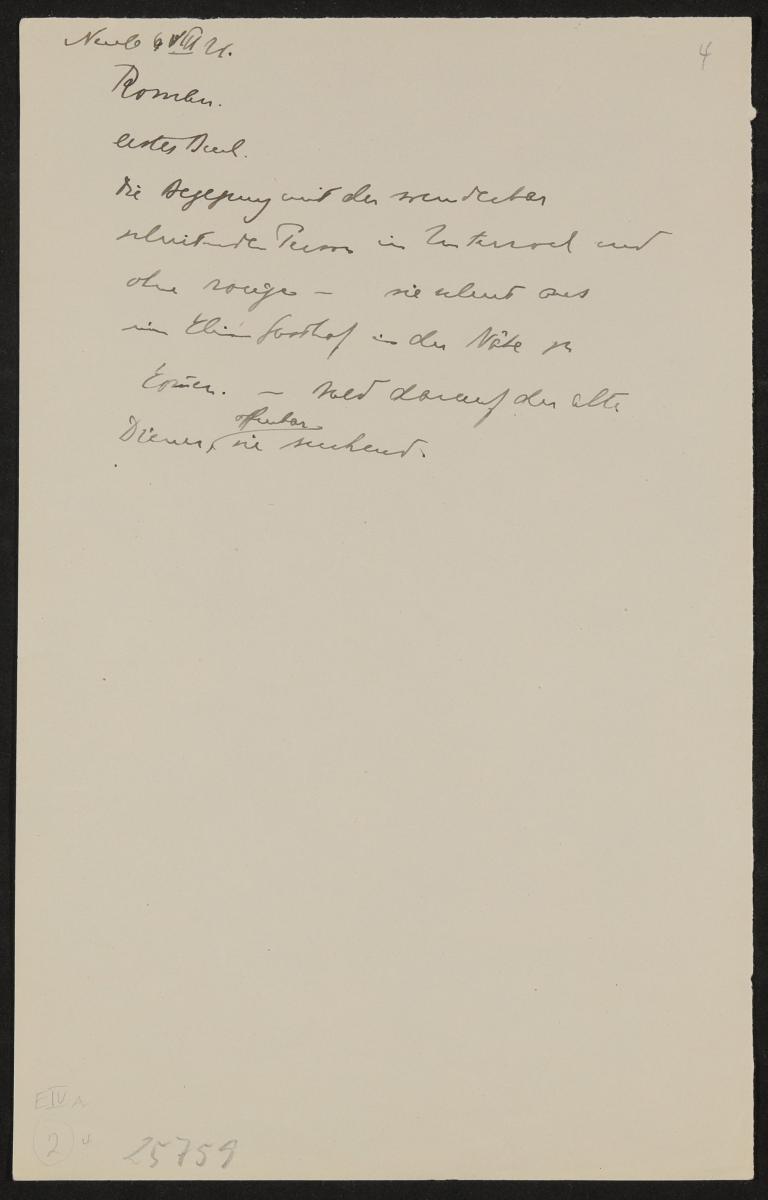 4
VIII 21.
Roman.
erstes Buch.
Die Begegnung mit der wunderbar
schreitenden Person im Unterrock und
ohne rouge – sie scheint aus
einem kleinen Gasthof in der Nähe zu
kommen. – bald darauf der alte
offenbar
Diener, sie suchend.
E IV A
2
25759